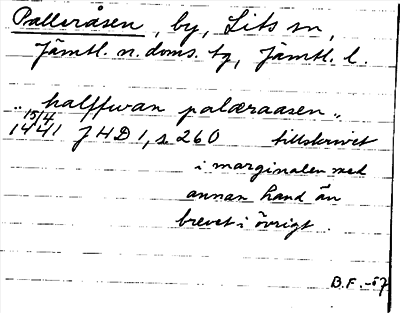 Pallråsen, by, Lits sn,
Jämtl. n. doms. tg, Jämtl. l.
„halffwan palæraasen„
15/4
1441 JHD 1, s 260 tillskrivet
i marginalen med
annan hand än
brevet i övrigt.
B.F. -57